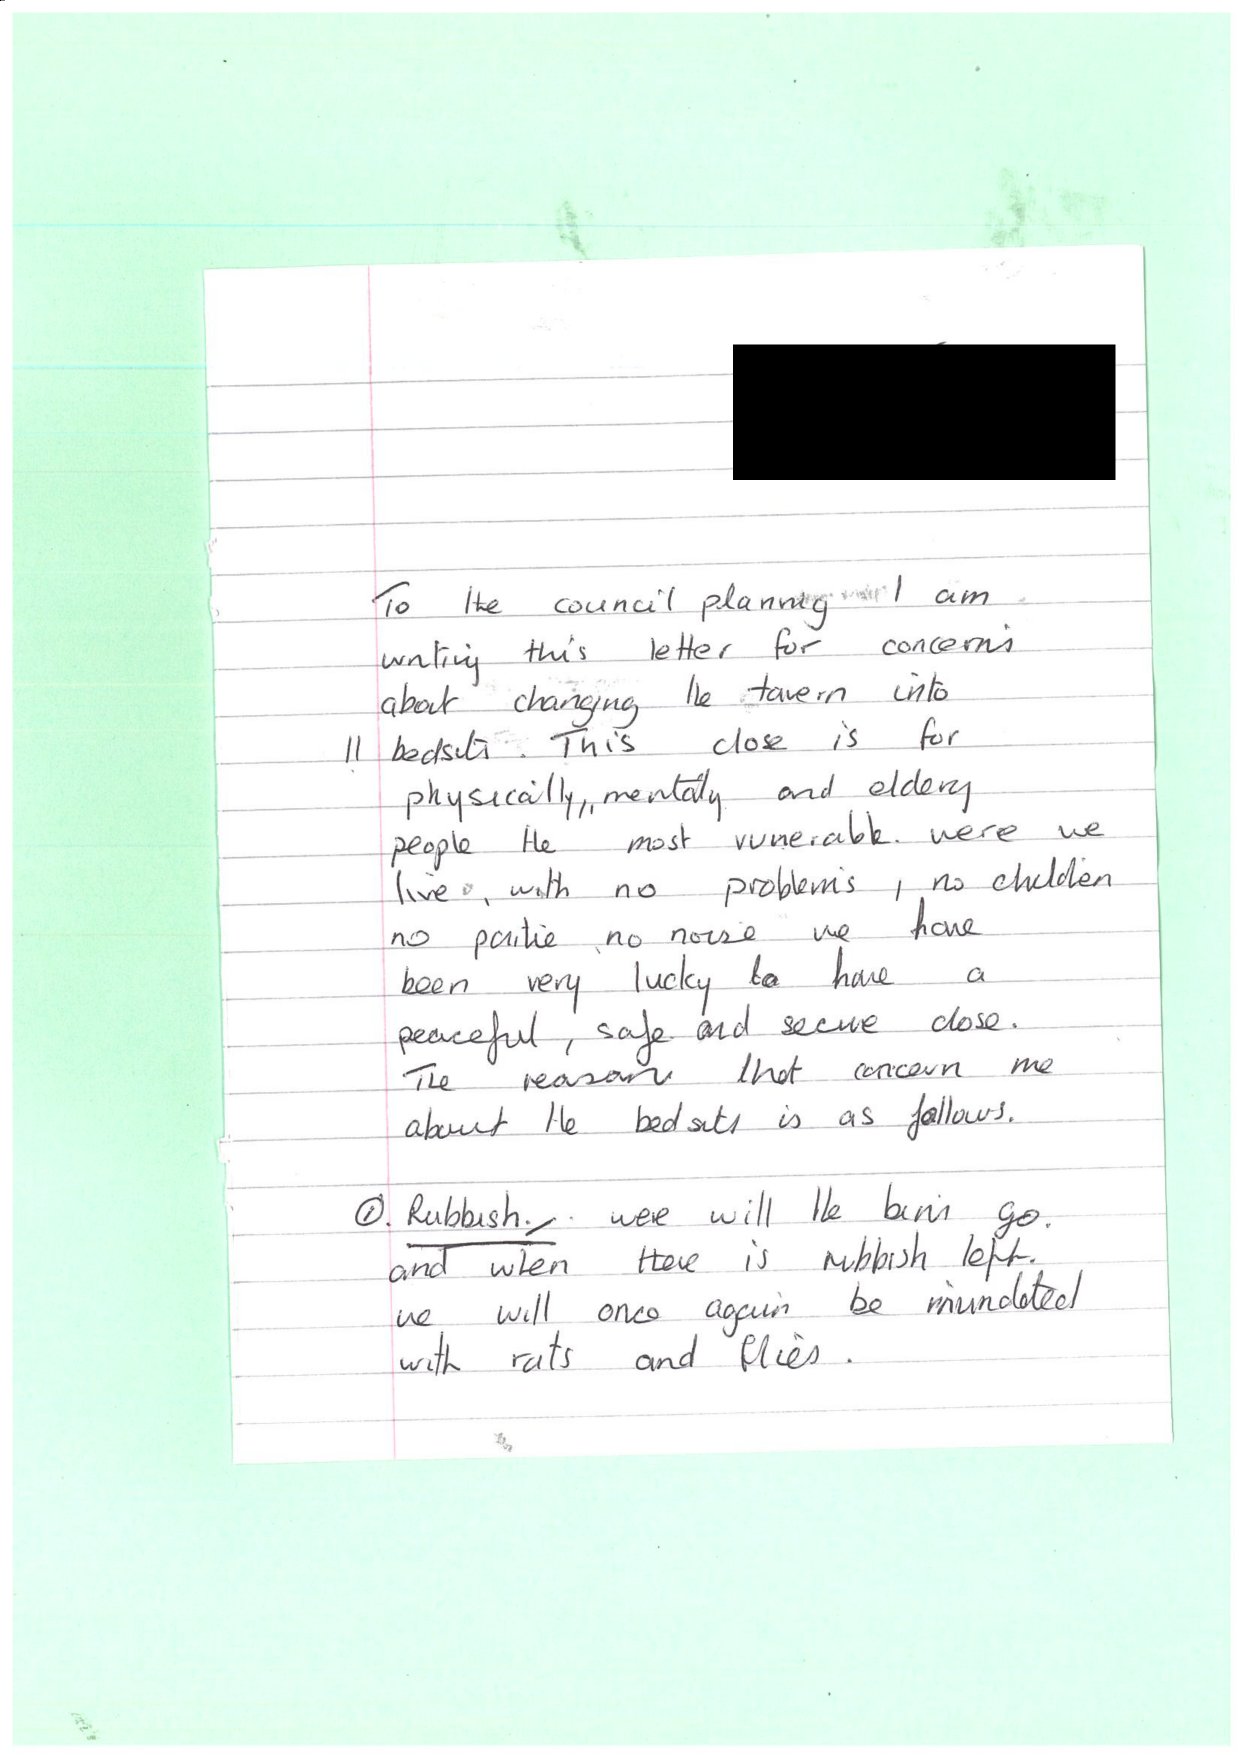 To the council planning I am
writing this letter for concerns
about changing the tavern into
11 bedsits. This close is for
physically,, mentaly and eldery
people the most vunerable. were we
live, with no problems, no children
no partie no noise we have
been very lucky to have a
peaceful, safe and secure close.
The reasons that concern me
about the bedsits is as follows.
①. Rubbish. were will the bins go.
and when there is rubbish left.
we will once again be inundated
with rats and flies.